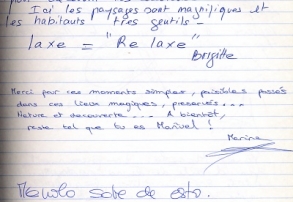 Ici les paysages sont magnifiques et
les habitants très gentils
laxe = "Relaxe"
Brigitte
Merci pour ces moments simples, paisibles passés
dans ces lieux magiques, préservés...
Nature et découverte... A bientôt,
reste tel que tu es Manuel!
Marine
Manolo sabe de esto.